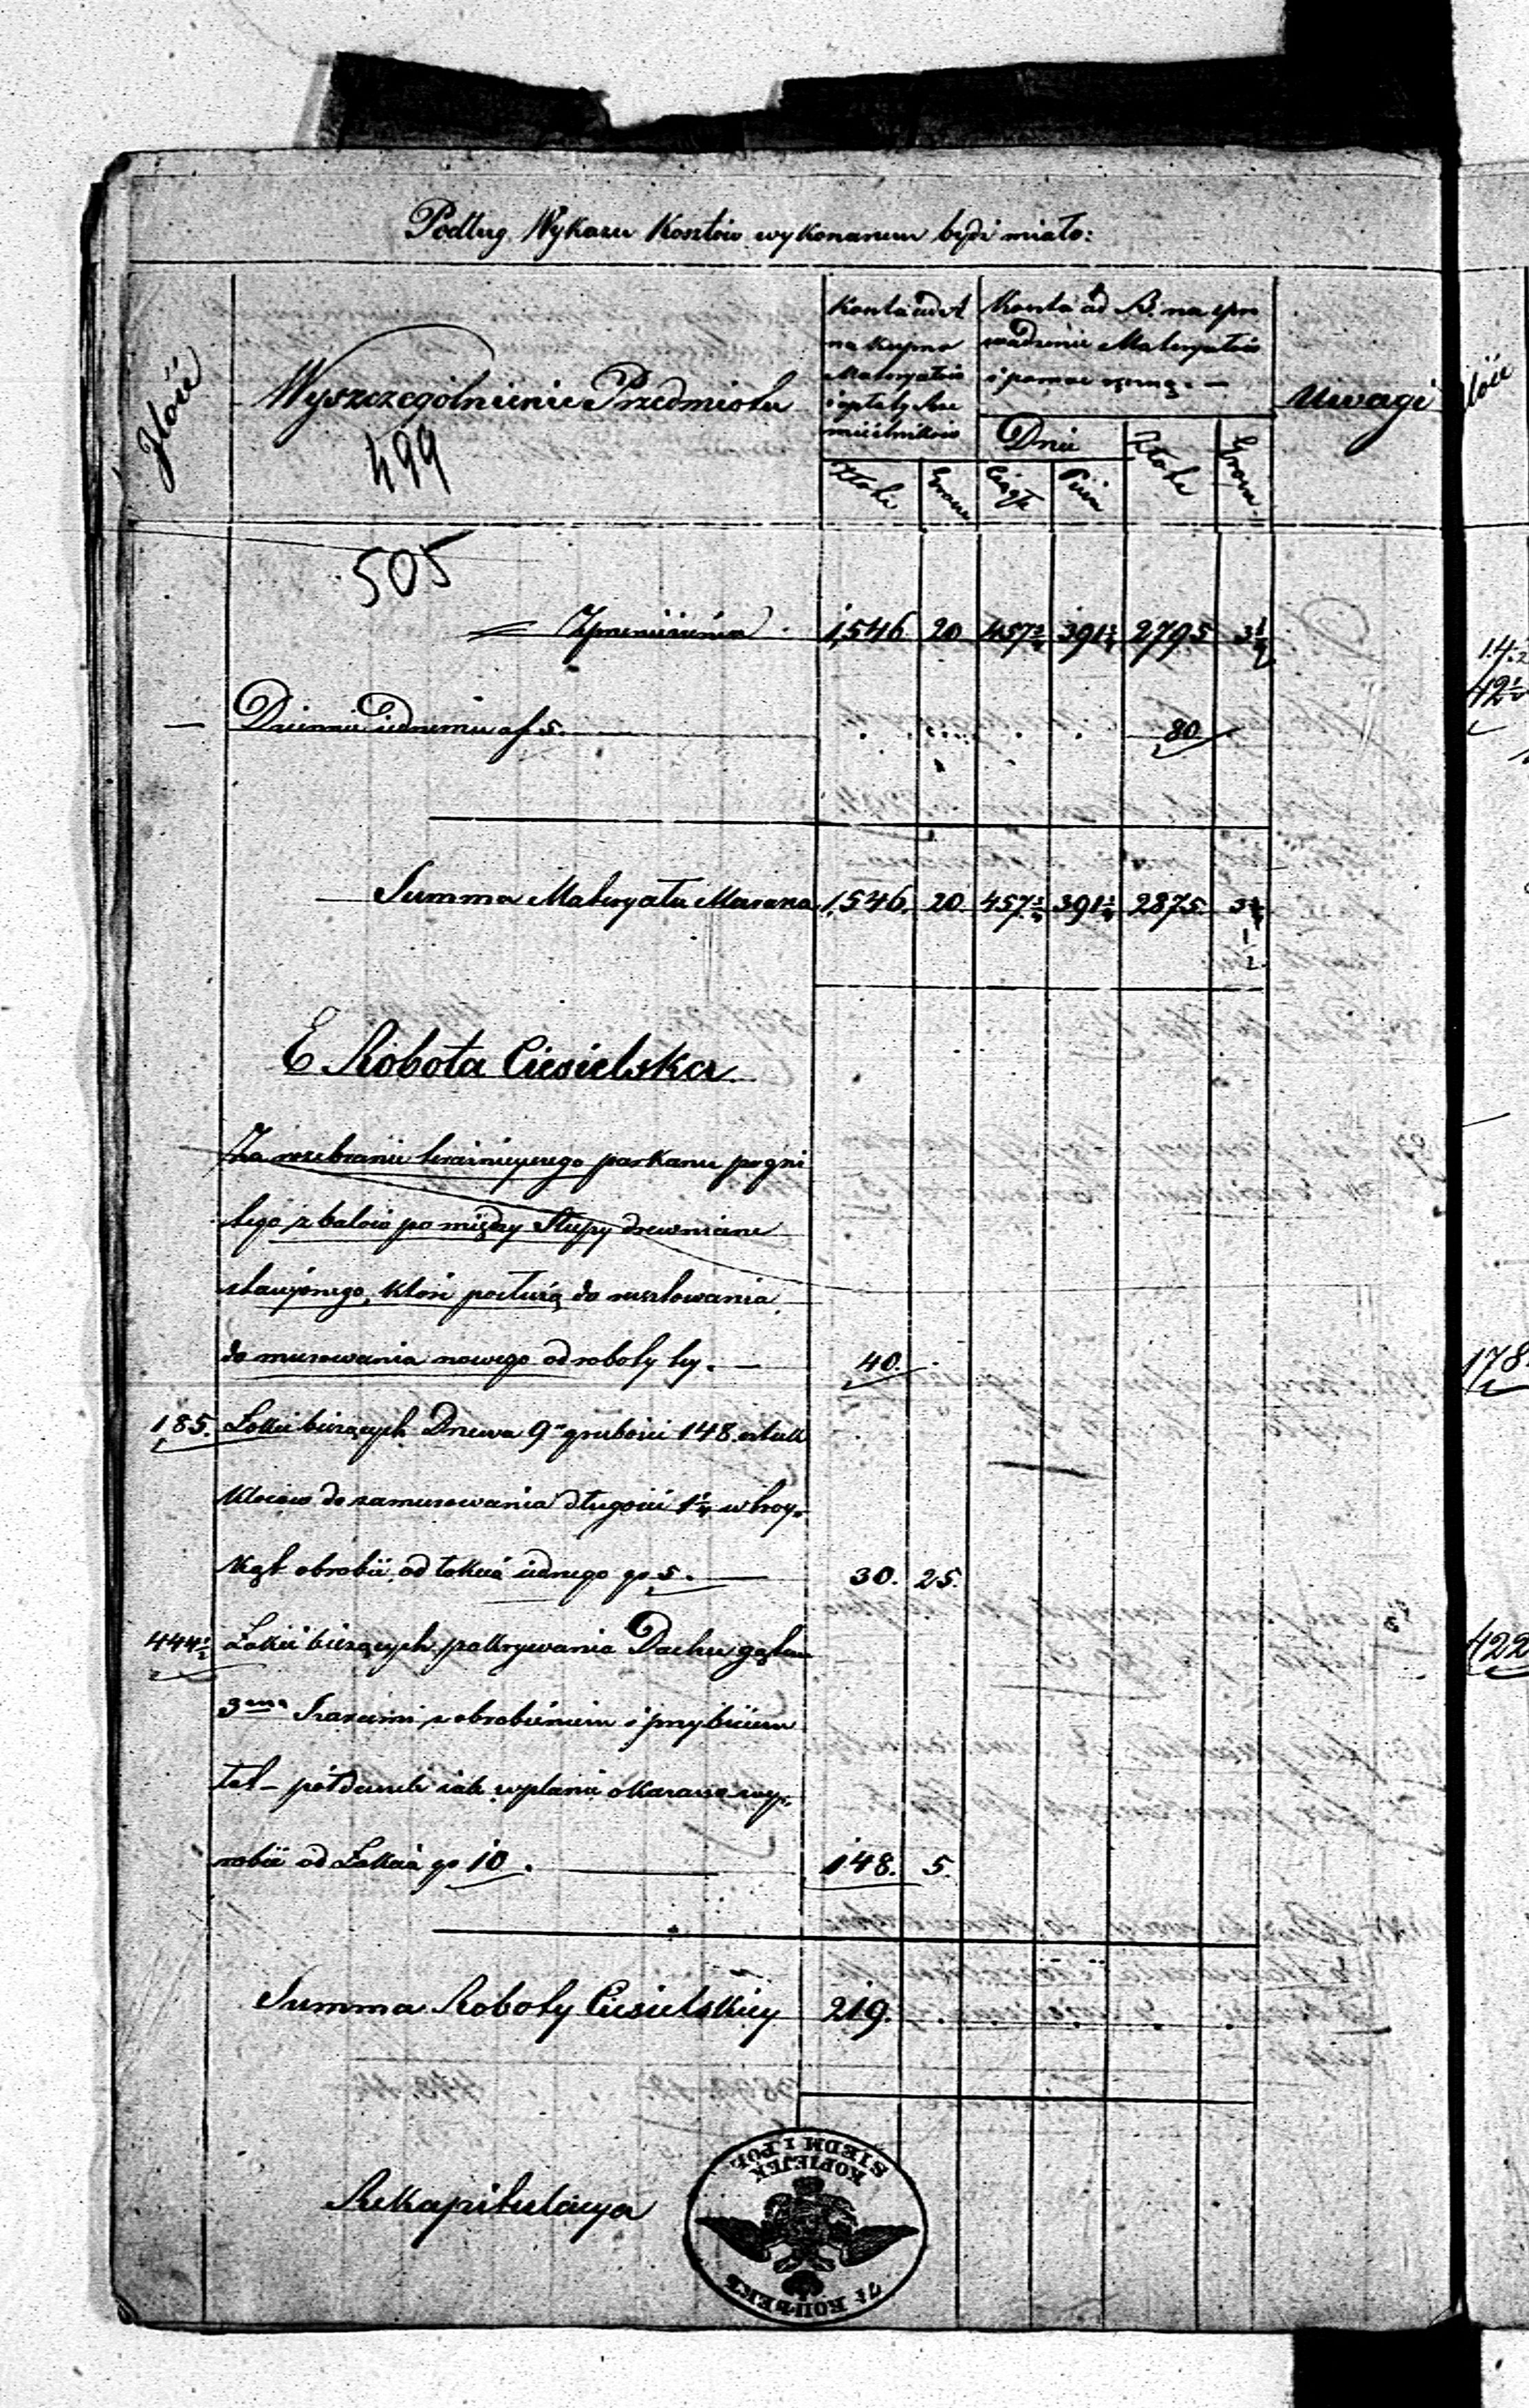 Podług Wykazu Kosztów wykonanem bydź miało:
Ilość
Wyszczególnienie Przedmiotu
Koszta ad A
na kupno
Materyałów
i opłatę Rze
mieślników
Koszta ad B. na spro
wadzenie Materyałów
i pomoc ręczną. —
Uwagi
Dnie
Złote
Grosze
Ciągłe
Piesze
Złote
Grosze
499
505
Z przeniesienia 1,546 20 457 2/4 391 1/4 2795 3 1/2
— Dziennie jednemu af 5. 80
Summa Materyału Mararza 1,546. 20. 457. 2/4 391 1/4 2875. 3 1/2
1/2
E Robota Ciesielska
Za rozebranie teraźnieyszego parkanu pogni
łego z balów pomiędzy Słupy drewniane
stawionego, które posłużą do rusztowania
do murowania nowego od roboty tey. — 40.
185. Łokci bieżących Drzewa 9" grubości 148 sztuk
Kloców do zamurowania długości 1 1/4 w troy-
kąt obrobić, od łokcia jednego gr 5. — 30. 25.
444 1/2 Łokci bieżących pokrywania Dachu gątem
3ma Tarcicami z obrobieniem i przybiciem
łat — pół deweli jak w planie okazano wy-
robić od Łokcia gr 10. — 148. 5.
Summa Roboty Ciesielskiey 219.
Rekapitulacya
SIEDM I PÓŁ
KOPIEJEK
7½ КОПѢЕКЪ
14.2
42 1/2
178.
422